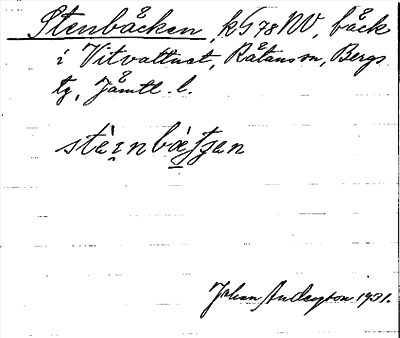 Stenbäcken, kG78NV, bäck
i Vitvattnet, Rätans sn, Bergs
tg, Jämtl. l.
stèɪnbæ̀tʃen
Johan Anderson 1931.